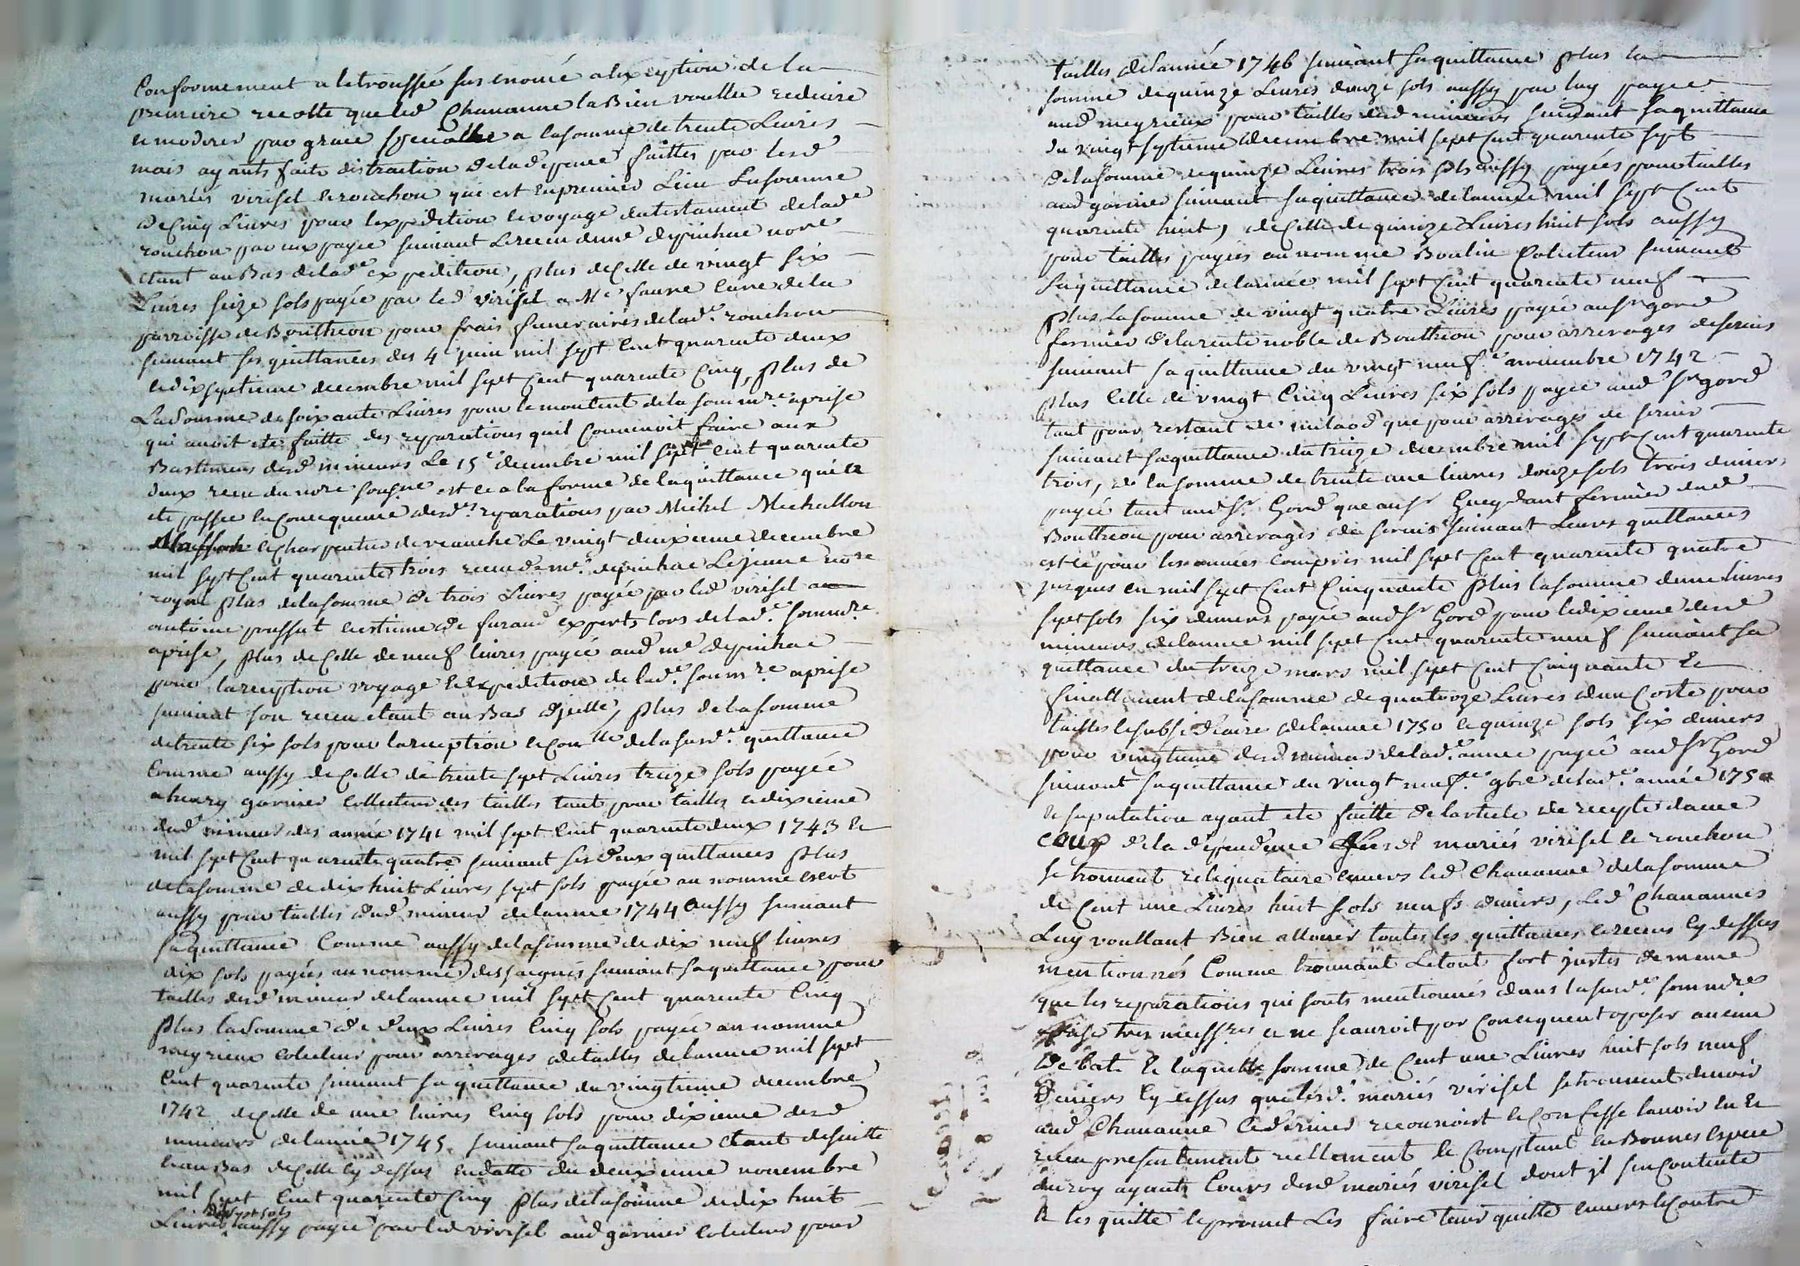 Conformement a letroussée sus enoncé alexeption de la
premiere recolte que led Chavanne la Bien voullu reduire
e moderer par grace specialle a lasomme de trente Livres
mais ayants faite distraction de la depence faittes par lesd
mariés virisel e rouchou qui est enpremier Lieu Lasomme
de Cinq Livres pour lexpedition e voyage du testament de lade
rouchou par eux payée suivant Lereceu dune depinhac nore
etant au Bas delade expedition, plus de Celle de vingt six
Livres seize sols payée par led virisel a Me faure Curé de la
parroisse de Boutheon pour frais funeraires delade rouchou
suivant ses quittances des 4e juin mil sept Cent quarente deux
e dix septieme decembre mil sept Cent quarente Cinq, plus de
La somme de soixante Livres pour le montent de la sommre aprise
qui auoit ete faitte des reparations quil Convenoit faire aux
Bastimens desd mineurs Le 15e decembre mil sept Cent quarente
deux receu du nore sousne est ce a la forme de laquittance qui a
ete passée en Consequence desdes reparations par Michel Michallon
e Charpentier de veauche Le vingt deuxieme decembre
mil sept Cent quarente trois receu de me depinhac Lejeune nore
royal plus de lasomme de trois Livres payée par led virisel a
antoine poussat e estienne de furaud experts lors de lade sommre
aprise, plus de Celle de neuf livres payée aud me depinhac
pour lareception voyage e Expedition de lade sommre aprise
suivant son receu etant au Bas dicelle, plus de la somme
de trente six sols pour lareception e Contlle de la susde quittance
Comme aussy de Celle de trente sept Livres treize sols payée
a henry garnier Collecteur des tailles tant pour tailles e dixieme
desd mineurs des année 1741 mil sept Cent quarente deux 1743 e
mil sept Cent quarente quatre suivant ses deux quittances plus
de la somme de dix huit Livres sept sols payée au nommé
aussy pour tailles desd mineurs delannée 1744 aussy suivant
sa quittance Comme aussy de la somme de dix neuf livres
dix sols payées au nommé desjaignes suivant sa quittance pour
tailles desd mineurs delannée mil sept Cent quarente Cinq
plus la somme de deux Livres Cinq sols payée au nomme
meyrieux Colecteur pour arrerages de tailles delannée mil sept
Cent quarente suivant sa quittance du vingtieme decembre
1742 de Celle de une livres Cinq sols pour dixieme desd
mineurs de lannée 1745. suivant sa quittance etant de suitte
e au Bas de Celle Cy dessus en datte du deuxieme novembre
mil sept Cent quarente Cinq plus de la somme de dix huit
dixsept sols
Livres aussy payée par led virisel aud garnier Colecteur pour
tailles de lannée 1746 suivant sa quittance plus la
somme de quinze Livres douze sols aussy par luy payee
aud meyrieux pour tailles desd mineurs suivant sa quittance
du vingt septieme decembre mil sept Cent quarente sept
de la somme de quinze Livres trois sols aussy payées pour tailles
aud garnier suivant sa quittance de lannée mil sept Cent
quarente huit, de Celle de quinze Livres huit sols aussy
pour tailles payées au nomme Boulin Colecteur suivant
sa quittance de lannée mil sept Cent quarente neuf
plus La somme de vingt quatre Livres payée au sr gord
fermier de la rente noble de Boutheon pour arrerages de servis
suivant sa quittance du vingt neufe novembre 1742
plus Celle de vingt Cinq Livres six sols payée aud sr gord
tant pour restant de milaod que pour arrerages de servis
suivant sa quittance du treize decembre mil sept Cent quarente
trois, de la somme de trente une livres douze sols trois deniers
payée tant aud sr Gord que au sr fermier dud
Boutheon pour arrerages de servis suivant Leurs quittances
est ce pour les années Compris mil sept Cent quarente quatre
jusques en mil sept Cent Cinquante plus la somme dune livres
sept sols six deniers payée aud sr Gord pour le dixieme desd
mineurs de lannée mil sept Cent quarente neuf suivant sa
quittance du treize mars mil sept Cent Cinquante Et
finallement de la somme de quatorze Livres dune Cotte pour
tailles de lannée 1750 e quinze sols six deniers
pour vingtieme desd mineurs de lade année payée aud sr Gord
suivant sa quittance du vingt neufe 9bre de lade année 1750
Suputation ayant ete faitte de larticle de recepte davec
Ceux de la dependence Lesd mariés virisel e rouchou
se trouvent reliquataire envers led Chavanne de la somme
de Cent une Livres huit sols neufs deniers, Led Chavannes
Luy voullant Bien allouer toutes les quittances e receus Cy dessus
mentionnés Comme trouvant Letout fort justes de meme
que les reparations qui sonts mentionnés dans la susde sommre
aprise tres necessres e ne scauroit par Consequent oposer aucun
debat. E laquelle somme de Cent une Livres huit sols neuf
deniers Cy dessus que lesd. mariés virisel se trouvent devoir
aud Chavanne Ce dernier reconnoist e Confesse lavoir eu E
receu presentement reellement e Comptant en Bonnes especes
du roy ayant Cours desd mariés virisel dont il se Contente
E les quitte e promet Les faire tenir quitte envers e Contre